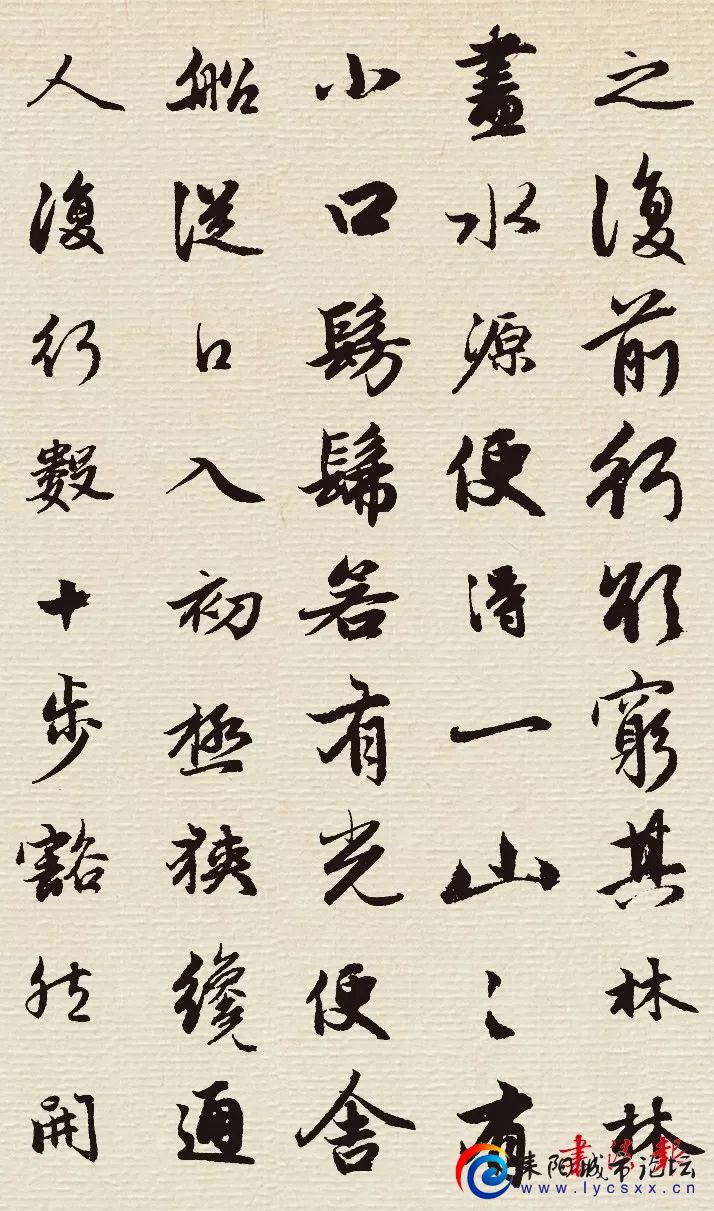 之復前行欲窮其林林
盡水源便得一山々有
小口髣髴若有光便舍
船從口入初極狹纔通
人復行數十步豁然開
书法报
耒阳城市论坛
www.lycsxx.cn